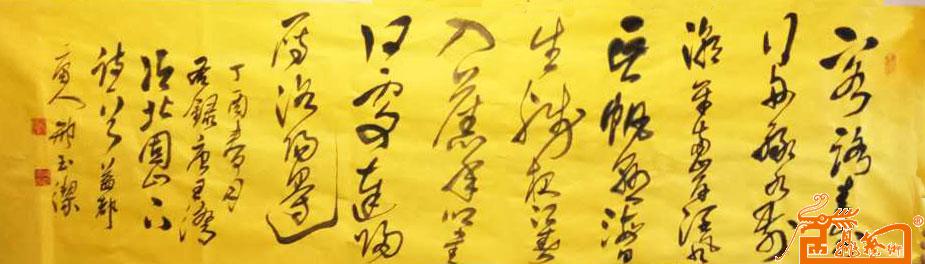 客路青山外
行舟绿水前
潮平两岸阔风
正一帆悬海日
生残夜江春
入旧年乡书
何处达归
雁洛阳边
丁酉春月
録唐王湾
次北固山下
诗
邢玉潔